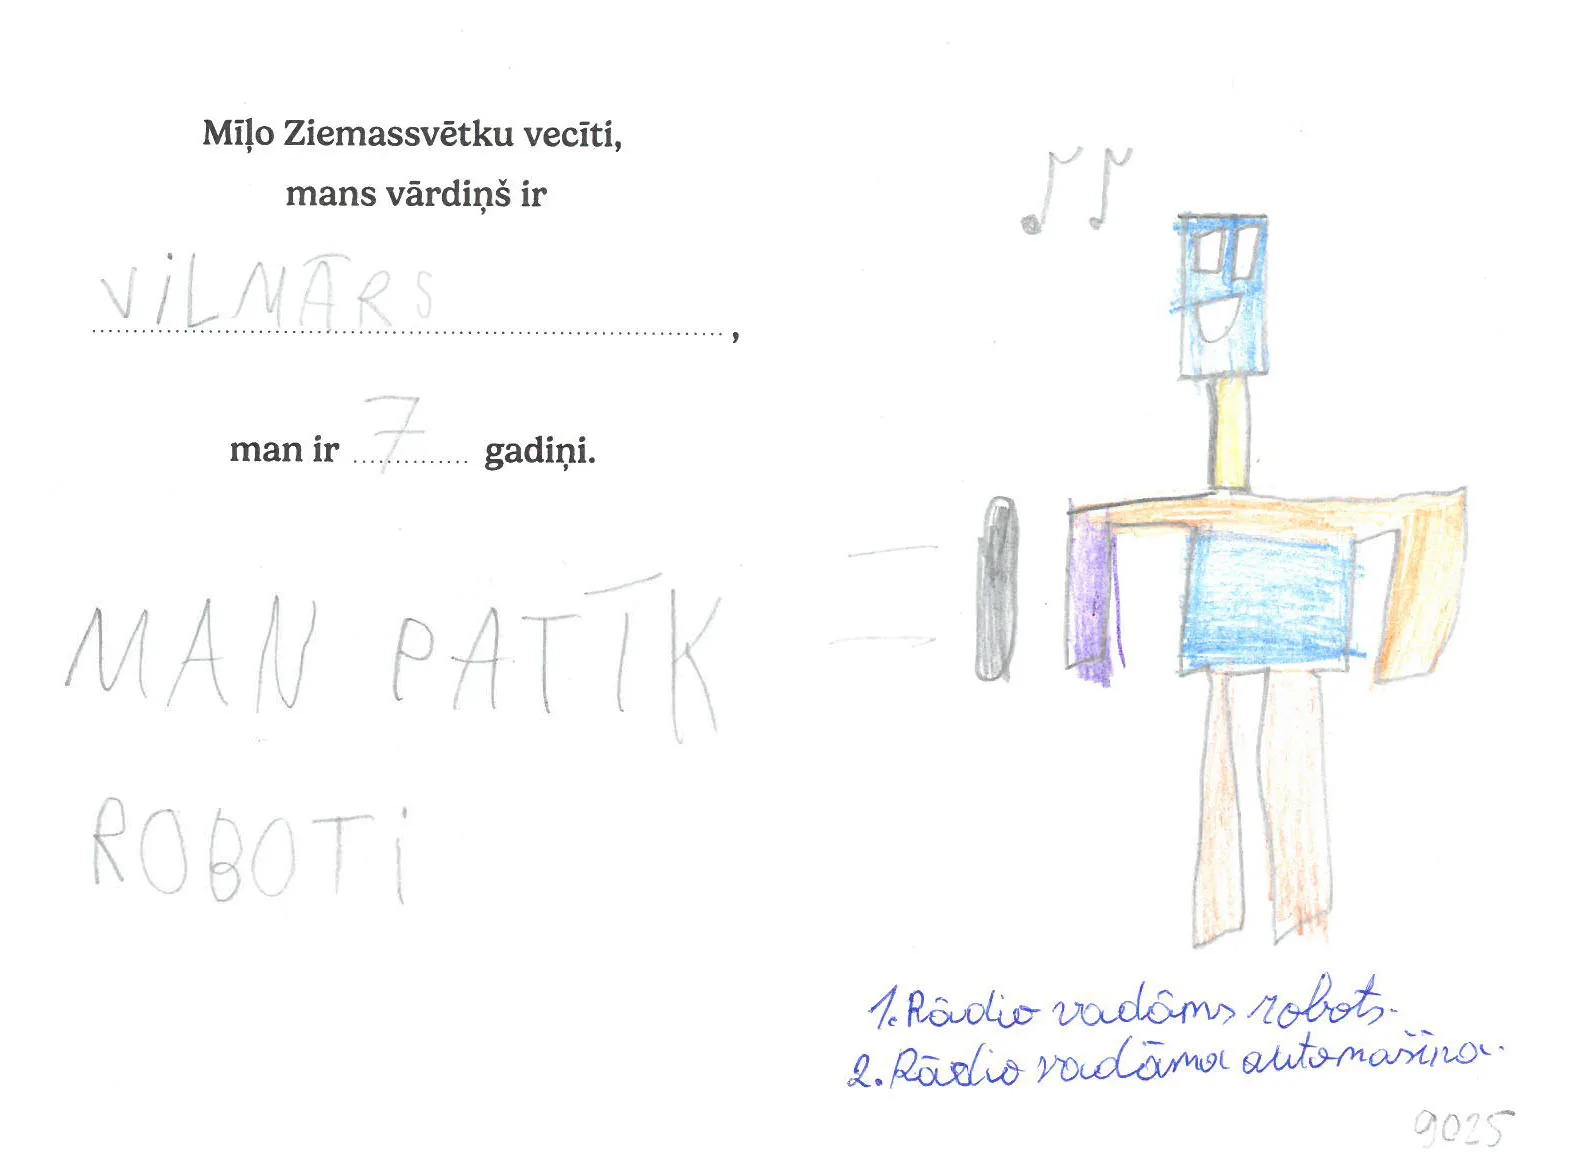 Mīļo Ziemassvētku vecīti,
mans vārdiņš ir
ViLMĀRS,
man ir 7 gadiņi.
MAN PATĪK
ROBOTi
1. Rādio vadāms robots.
2. Rādio vadāma automašīna.
9025